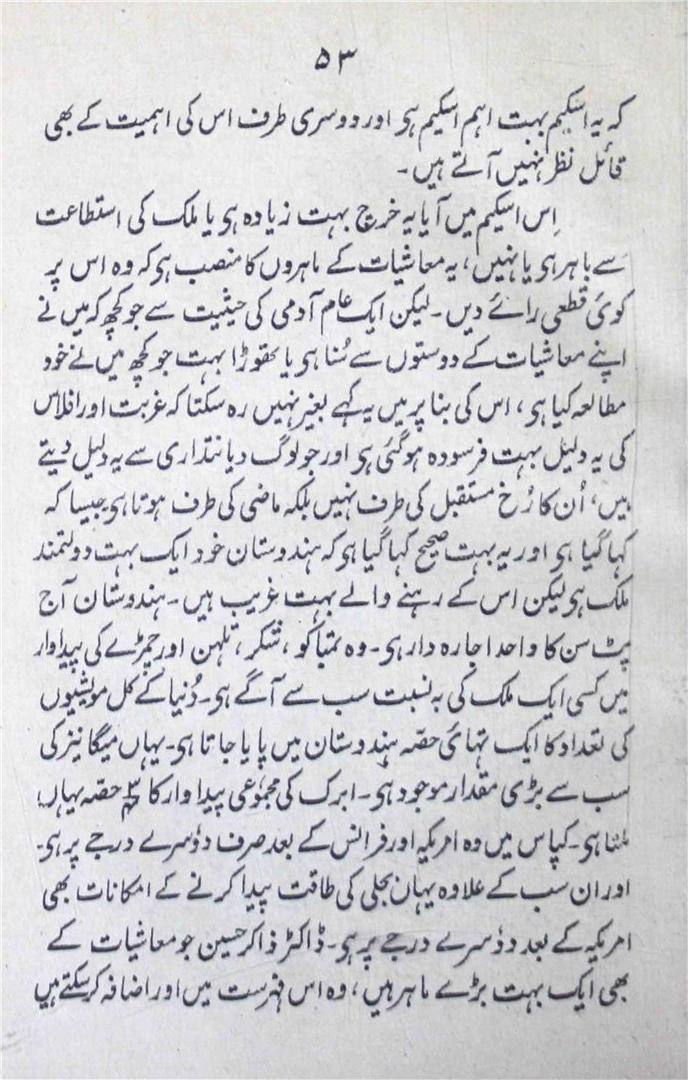 ۵۳
کہ یہ اسکیم بہت اہم اسکیم ہی اور دوسری طرف اس کی اہمیت کے بھی
قائل نظر نہیں آتے ہیں۔
اِس اسکیم میں آیا یہ خرچ بہت زیادہ ہی یا ملک کی استطاعت
سے باہر ہی یا نہیں، یہ معاشیات کے ماہروں کا منصب ہی کہ وہ اس پر
کوئی قطعی رائے دیں۔ لیکن ایک عام آدمی کی حیثیت سے جو کچھ کہ میں نے
اپنے معاشیات کے دوستوں سے سُنا ہی یا تھوڑا بہت جو کچھ میں نے خود
مطالعہ کیا ہی، اس کی بنا پر میں یہ کہے بغیر نہیں رہ سکتا کہ غربت اور افلاس
کی یہ دلیل بہت فرسودہ ہوگئی ہی اور جو لوگ دیانتداری سے یہ دلیل دیتے
ہیں، اُن کا رُخ مستقبل کی طرف نہیں بلکہ ماضی کی طرف ہوتا ہی جیسا کہ
کہا گیا ہی اور یہ بہت صحیح کہا گیا ہی کہ ہندوستان خود ایک بہت دولتمند
ملک ہی لیکن اس کے رہنے والے بہت غریب ہیں۔ ہندوستان آج
پٹ سن کا واحد اجارہ دار ہی۔ وہ تمباکو، شکر، تلہن اور چمڑے کی پیداوار
میں کسی ایک ملک کی بہ نسبت سب سے آگے ہی۔ دُنیا کے کل مویشیوں
کی تعداد کا ایک تہائی حصہ ہندوستان میں پایا جاتا ہی۔ یہاں میگانیز کی
سب سے بڑی مقدار موجود ہی۔ ابرک کی مجموعی پیداوار کا حصہ یہاں
ملتا ہی۔ کپاس میں وہ امریکہ اور فرانس کے بعد صرف دوُسرے درجے پر ہی۔
اور ان سب کے علاوہ یہاں بجلی کی طاقت پیدا کرنے کے امکانات بھی
امریکہ کے بعد دوُسرے درجے پر ہی۔ ڈاکٹر ذاکر حسین جو معاشیات کے
بھی ایک بہت بڑے ماہر ہیں، وہ اس فہرست میں اور اضافہ کرسکتے ہیں